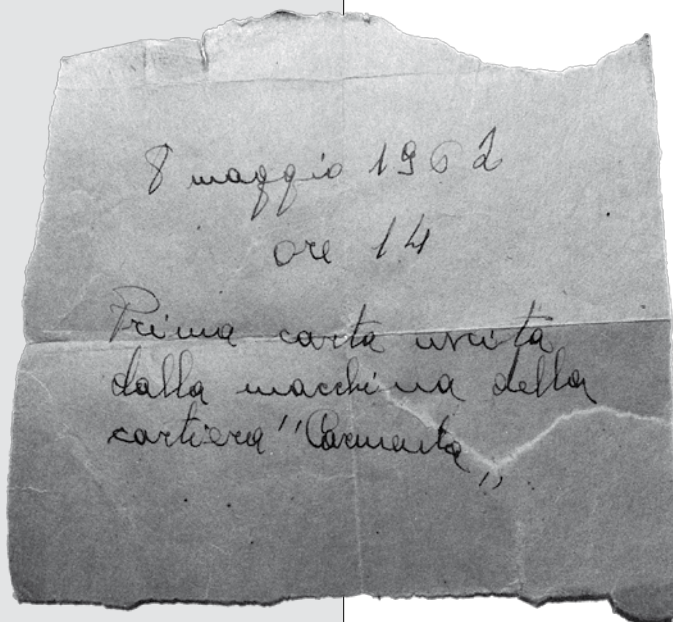 8 maggio 1962
ore 14
Prima carta uscita
dalla macchina della
cartiera "Carmenta„